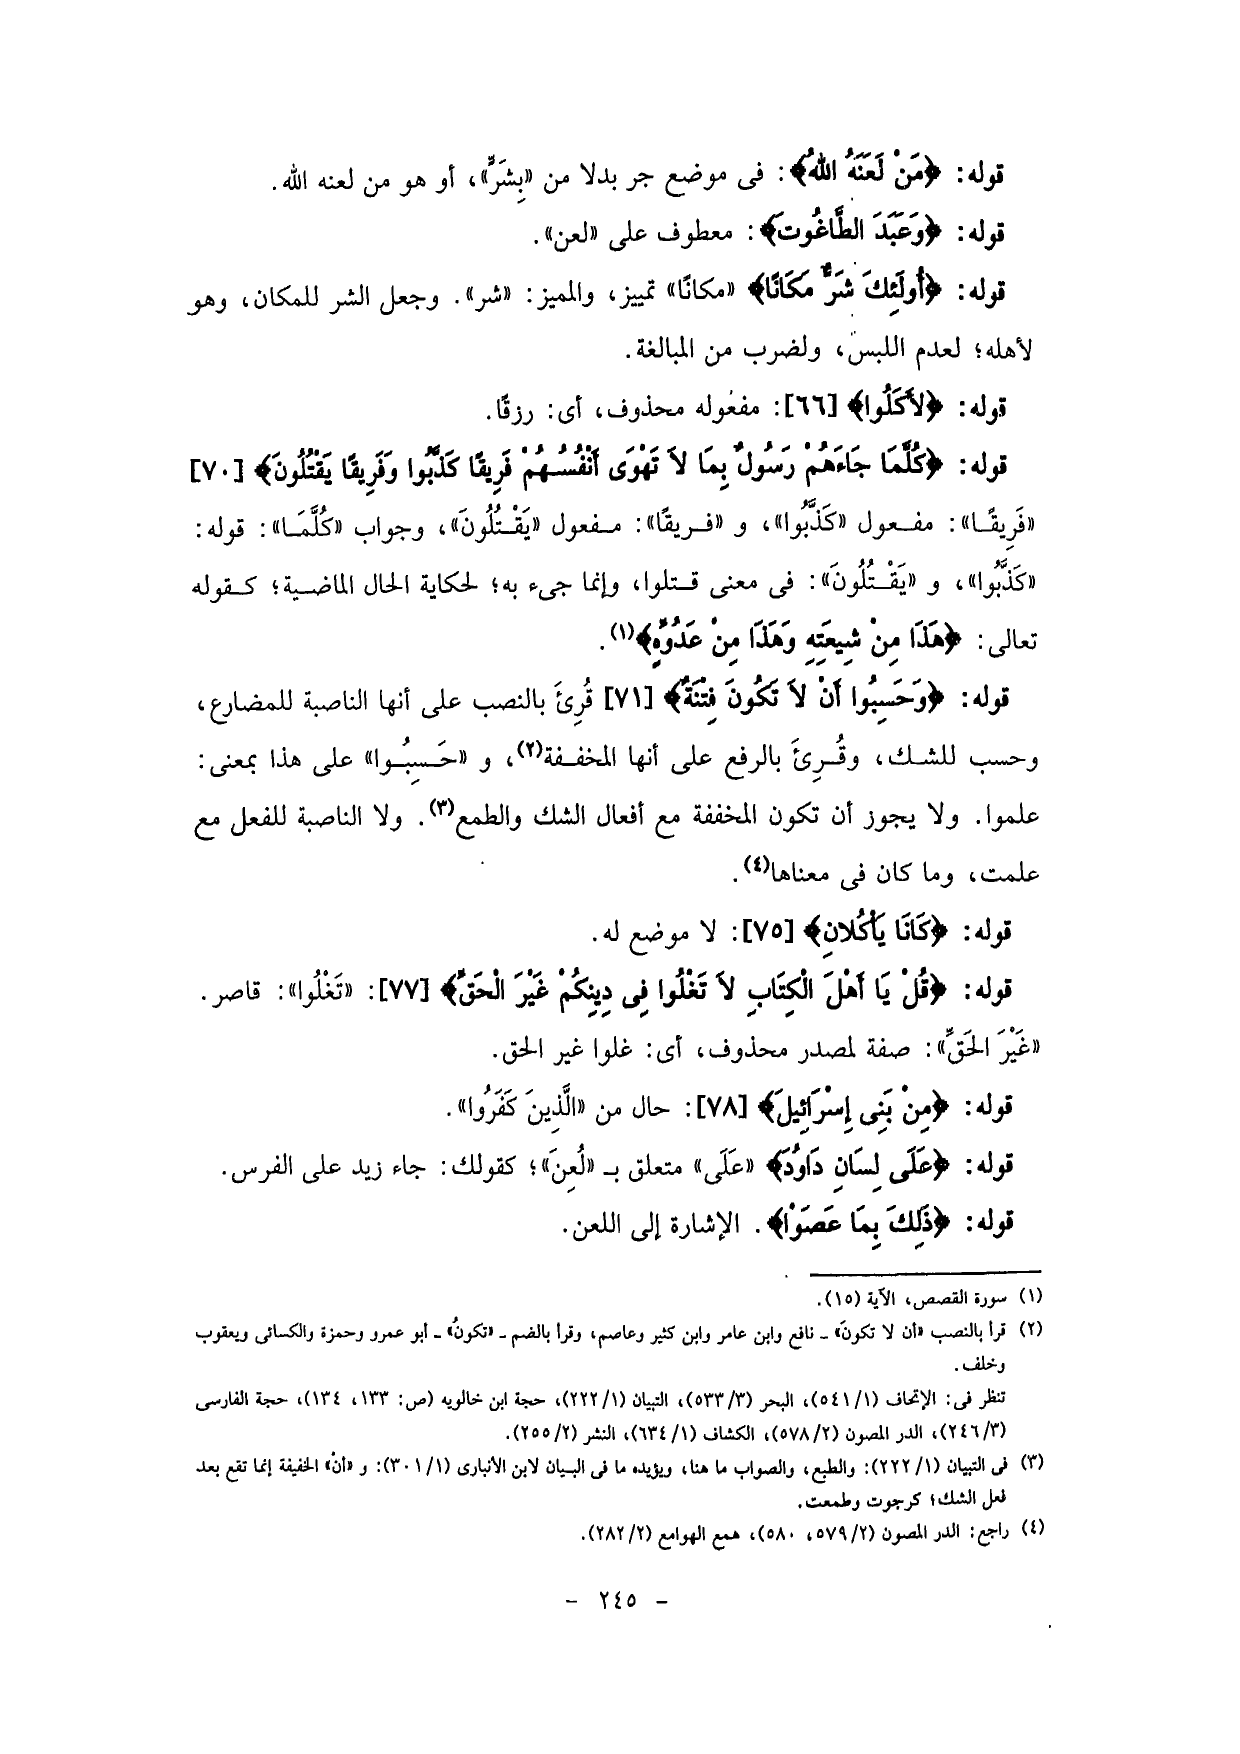 قوله: ﴿مَنْ لَعَنَهُ اللهُ﴾: فى موضع جر بدلا من «بِشَرٍّ»، أو هو من لعنه الله.
قوله: ﴿وَعَبَدَ الطَّاغُوتَ﴾: معطوف على «لعن».
قوله: ﴿أُولَئِكَ شَرٌّ مَكَانًا﴾ «مكانًا» تمييز، والمميز: «شر». وجعل الشر للمكان، وهو
لأهله؛ لعدم اللبس، ولضرب من المبالغة.
قوله: ﴿لأَكَلُوا﴾ [٦٦]: مفعوله محذوف، أى: رزقًا.
قوله: ﴿كُلَّمَا جَاءَهُمْ رَسُولٌ بِمَا لاَ تَهْوَى أَنْفُسُهُمْ فَرِيقًا كَذَّبُوا وَفَرِيقًا يَقْتُلُونَ﴾ [٧٠]
«فَرِيقًا»: مفعول «كَذَّبُوا»، و «فريقًا»: مفعول «يَقْتُلُونَ»، وجواب «كُلَّمَا»: قوله:
«كَذَّبُوا»، و «يَقْتُلُونَ»: فى معنى قتلوا، وإنما جىء به؛ لحكاية الحال الماضية؛ كقوله
تعالى: ﴿هَذَا مِنْ شِيعَتِهِ وَهَذَا مِنْ عَدُوِّهِ﴾(١).
قوله: ﴿وَحَسِبُوا أَنْ لاَ تَكُونَ فِتْنَةٌ﴾ [٧١] قُرِئَ بالنصب على أنها الناصبة للمضارع،
وحسب للشك، وقُرِئَ بالرفع على أنها المخففة(٢)، و «حَسِبُوا» على هذا بمعنى:
علموا. ولا يجوز أن تكون المخففة مع أفعال الشك والطمع(٣). ولا الناصبة للفعل مع
علمت، وما كان فى معناها(٤).
قوله: ﴿كَانَا يَأْكُلانِ﴾ [٧٥]: لا موضع له.
قوله: ﴿قُلْ يَا أَهْلَ الْكِتَابِ لاَ تَغْلُوا فِى دِينِكُمْ غَيْرَ الْحَقِّ﴾ [٧٧]: «تَغْلُوا»: قاصر.
«غَيْرَ الحَقِّ»: صفة لمصدر محذوف، أى: غلوا غير الحق.
قوله: ﴿مِنْ بَنِى إِسْرَائِيلَ﴾ [٧٨]: حال من «الَّذِينَ كَفَرُوا».
قوله: ﴿عَلَى لِسَانِ دَاوُدَ﴾ «عَلَى» متعلق بـ «لُعِنَ»؛ كقولك: جاء زيد على الفرس.
قوله: ﴿ذَلِكَ بِمَا عَصَوْا﴾. الإشارة إلى اللعن.
(١) سورة القصص، الآية (١٥).
(٢) قرأ بالنصب «أن لا تكونَ» ـ نافع وابن عامر وابن كثير وعاصم، وقرأ بالضم ـ «تكونُ» ـ أبو عمرو وحمزة والكسائى ويعقوب
وخلف.
تنظر فى: الإتحاف (١/ ٥٤١)، البحر (٣/ ٥٣٣)، التبيان (١/ ٢٢٢)، حجة ابن خالويه (ص: ١٣٣، ١٣٤)، حجة الفارسى
(٣/ ٢٤٦)، الدر المصون (٢/ ٥٧٨)، الكشاف (١/ ٦٣٤)، النشر (٢/ ٢٥٥).
(٣) فى التبيان (١/ ٢٢٢): والطبع، والصواب ما هنا، ويؤيده ما فى البيان لابن الأنبارى (١/ ٣٠١): و «أنْ» الخفيفة إنما تقع بعد
فعل الشك؛ كرجوت وطمعت.
(٤) راجع: الدر المصون (٢/ ٥٧٩، ٥٨٠)، همع الهوامع (٢/ ٢٨٢).
- ٢٤٥ -